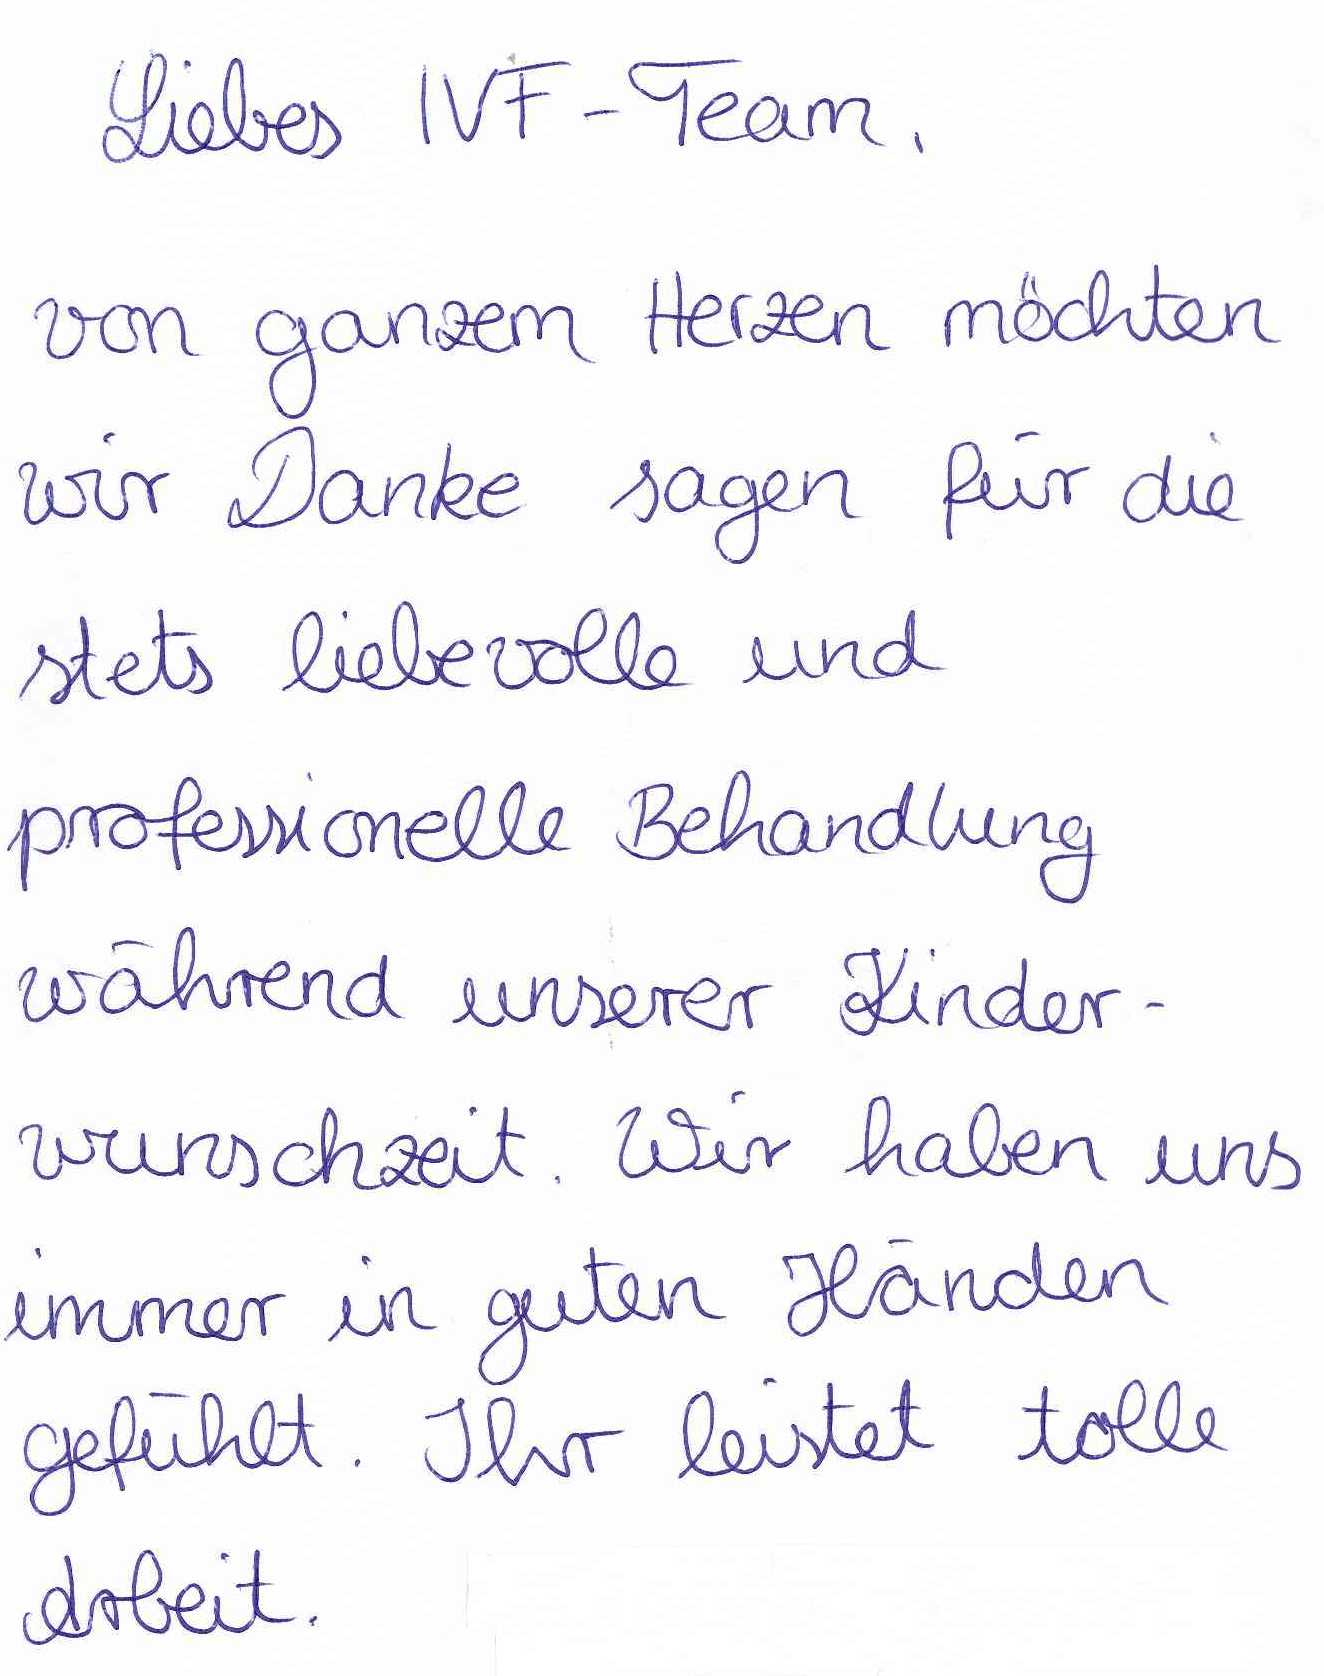 Liebes IVF-Team,
von ganzem Herzen möchten
wir Danke sagen für die
stets liebevolle und
professionelle Behandlung
während unserer Kinder-
wunschzeit. Wir haben uns
immer in guten Händen
gefühlt. Ihr leistet tolle
Arbeit.